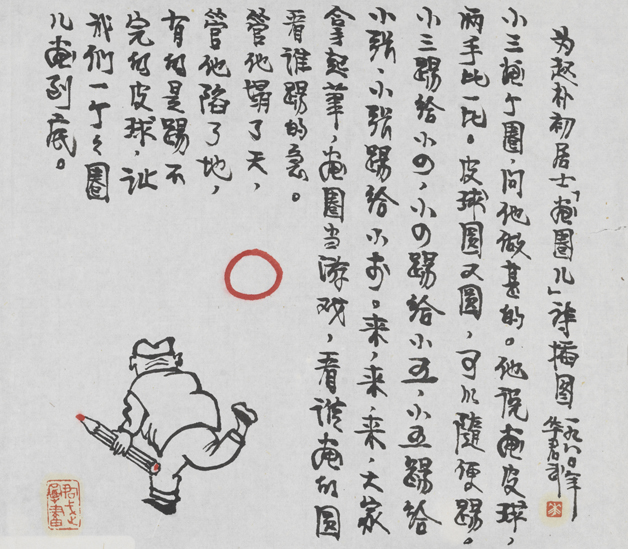 为赵朴初居士「画圈儿」诗插图
一九八〇年
华君武
小三画个圈，问他做甚的。他说画皮球，
两手比一比。皮球圆又圆，可以隨便踢。
小三踢给小四，小四踢给小五，小五踢给
小张，小张踢给小。来，来，来，大家
拿起筆，画圈当游戏，看谁画的圆
看谁踢的急。
管他塌了天，
管他陷了地，
有的是踢不
完的皮球，让
我们一个々圈
儿画到底。